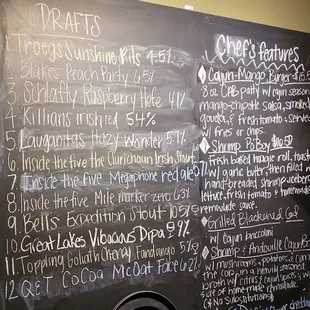 DRAFTS
Troegs Sunshine Pils 4.5%
Blakes Peach Party 6.5%
3 Schlafly Raspberry Hefe 4.1%
4 Killians Irish red 5.4%
5 Lauganitas Hazy Wonder 5.7%
6 Inside the five the Irish Stout
Inside the five Megaphone red ale
8 Inside the five Mile marker zero 63%
9 Bells Expedition Stout 10.5%
10 Great Lakes Vibacious Dipa
11 Toppling Goliath Cherry Fandango 5%
12 QET CoCoa McOat Face 6.2%
Chef's features
Cajun-Mango Burger
8 oz patty w/ cajun
mango-chipotle salsa, smoked
gouda, & fresh tomato served
w/ fries or chips
Shrimp Po'Boy
Fresh baked hoagie roll, toasted
w/ garlic butter, then filled
hand-breaded, shrimp,
lettuce, fresh tomato & homemade
remoulade sauce
Grilled Blackened Cod
w/ cajun broccolini
Shrimp & Andouille Cajun
w/ mushrooms, potatoes, &
in a heavily seasoned
broth w/ citrus & spices w/
side of home-made remoulade
(No Substitutions)